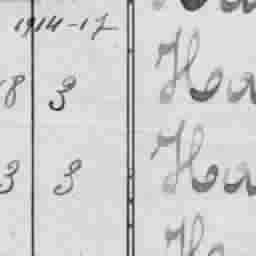 1914-17
8 3 Ha
3 3 Ha
Ha